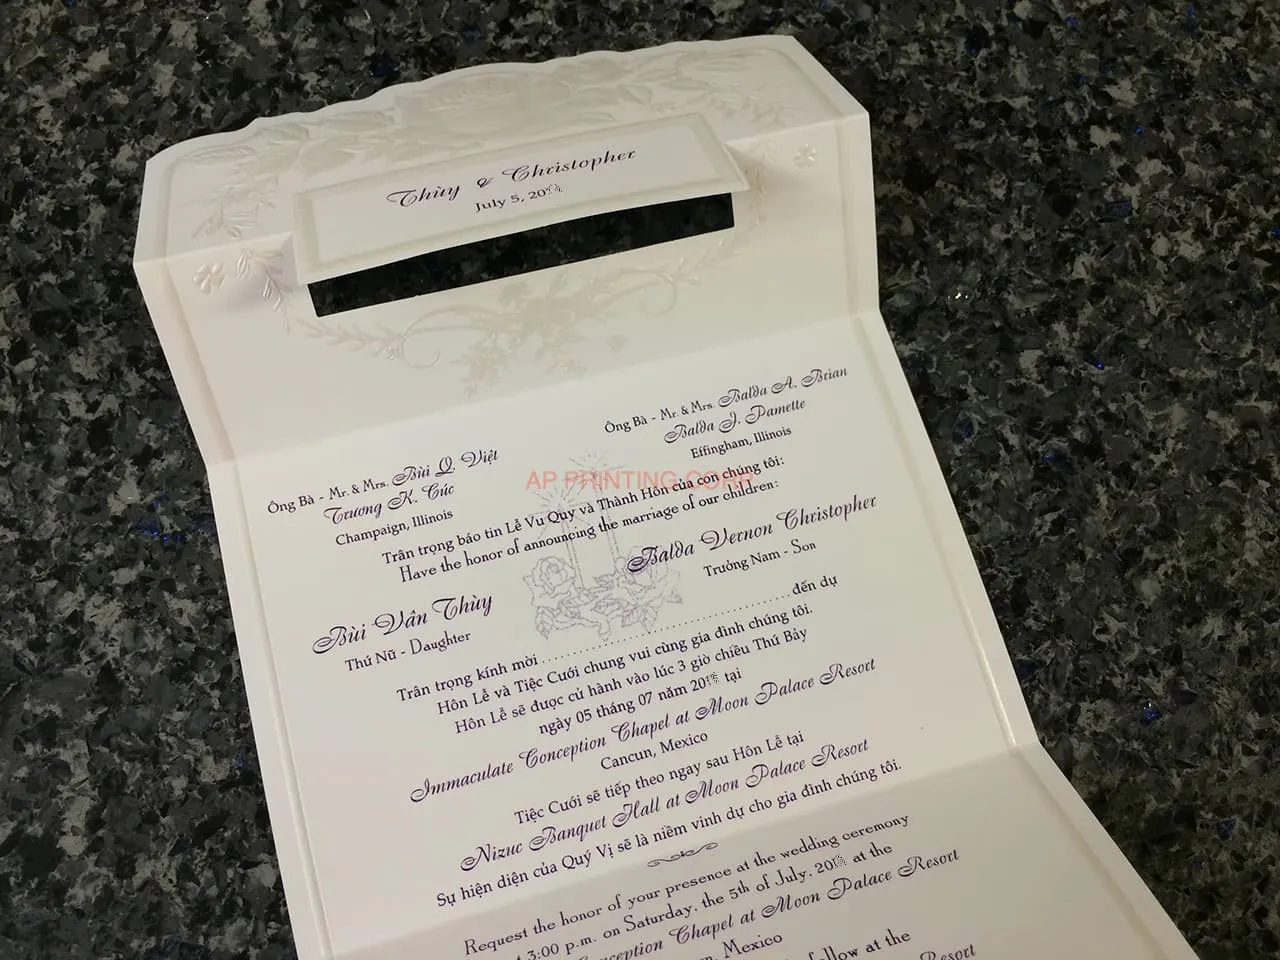 Thùy & Christopher
July 5, 20
Ông Bà - Mr. & Mrs. Bùi Q. Việt
Trương K. Cúc
Champaign, Illinois
Ông Bà - Mr. & Mrs. Balda A. Brian
Balda J. Pamette
Effingham, Illinois
AP PRINTING CORP
Trân trọng báo tin Lễ Vu Quy và Thành Hôn của con chúng tôi:
Have the honor of announcing the marriage of our children:
Bùi Vân Thùy
Thứ Nữ - Daughter
Balda Vernon Christopher
Trưởng Nam - Son
Trân trọng kính mời ........................................ đến dự
Hôn Lễ và Tiệc Cưới chung vui cùng gia đình chúng tôi.
Hôn Lễ sẽ được cử hành vào lúc 3 giờ chiều Thứ Bảy
ngày 05 tháng 07 năm 20 tại
Immaculate Conception Chapel at Moon Palace Resort
Cancun, Mexico
Tiệc Cưới sẽ tiếp theo ngay sau Hôn Lễ tại
Nizuc Banquet Hall at Moon Palace Resort
Sự hiện diện của Quý Vị sẽ là niềm vinh dự cho gia đình chúng tôi.
Request the honor of your presence at the wedding ceremony
at 3:00 p.m. on Saturday, the 5th of July, 20 at the
Conception Chapel at Moon Palace Resort
Mexico
follow at the
Resort